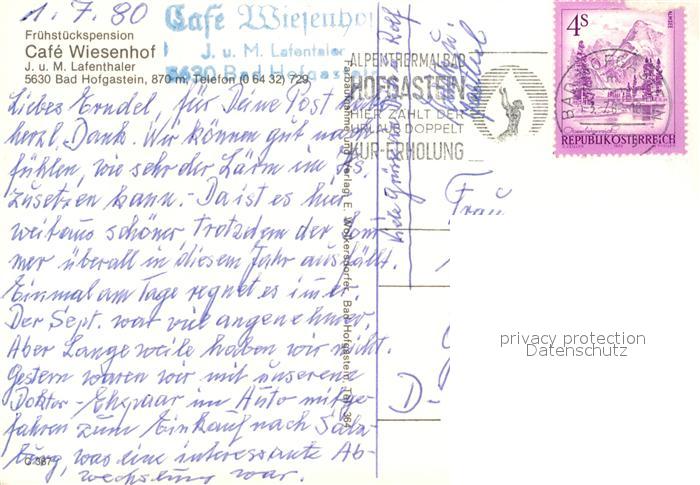 1.7.80
Frühstückspension
Café Wiesenhof
J. u. M. Lafenthaler
5630 Bad Hofgastein, 870 m, Telefon (0 64 32) 729
Café Wiesenhof
J. u. M. Lafenthaler
5630 Bad Hofgastein
Liebes Erndel, für Deine Post
herzl. Dank. Wir können gut nach
fühlen, wie sehr der Lärm im
zusetzen kann. - Da ist es hier
weitaus schöner trotzdem der Som
mer überall in diesem Jahr ausfällt.
Einmal am Tage regnet es immer.
Der Sept. war viel angenehmer.
Aber Langeweile haben wir nicht.
Gestern waren wir mit unserem
Doktor-Ehepaar im Auto mitge-
fahren zum Einkauf nach Salz-
burg, was eine interessante Ab-
wechslung war.
C 367
Viele Grüße Rolf
Farbaufnahme und Verlag E. Wolkersdorfer, Bad Hofgastein, Tel. 364
ALPENTHERMALBAD
HOFGASTEIN
HIER ZÄHLT DER
URLAUB DOPPELT
KUR-ERHOLUNG
4S
REPUBLIK ÖSTERREICH
Frau
D-
privacy protection
Datenschutz